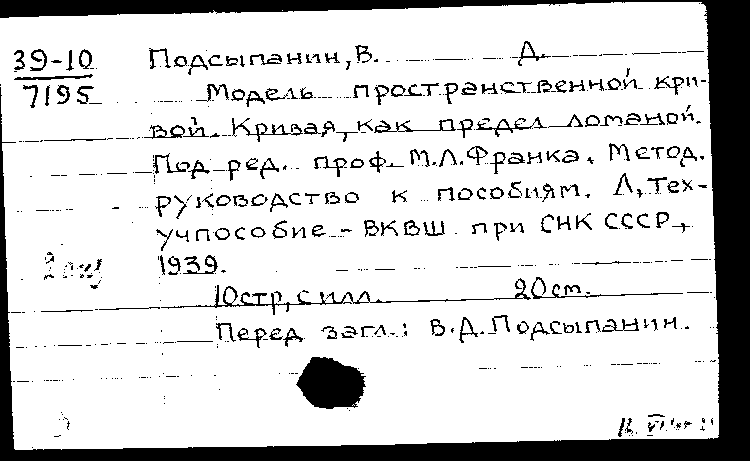 39-10 Подсыпанин, В. Д.
7195 Модель пространственной кри-
вой. Кривая, как предел ломаной.
Под ред. проф. М.Л.Франка. Метод.
руководство к пособиям. Л, Тех-
учпособие - ВКВШ при СНК СССР,
1939.
10стр, с илл. 20 ст.
Перед загл.: В.Д.Подсыпанин.